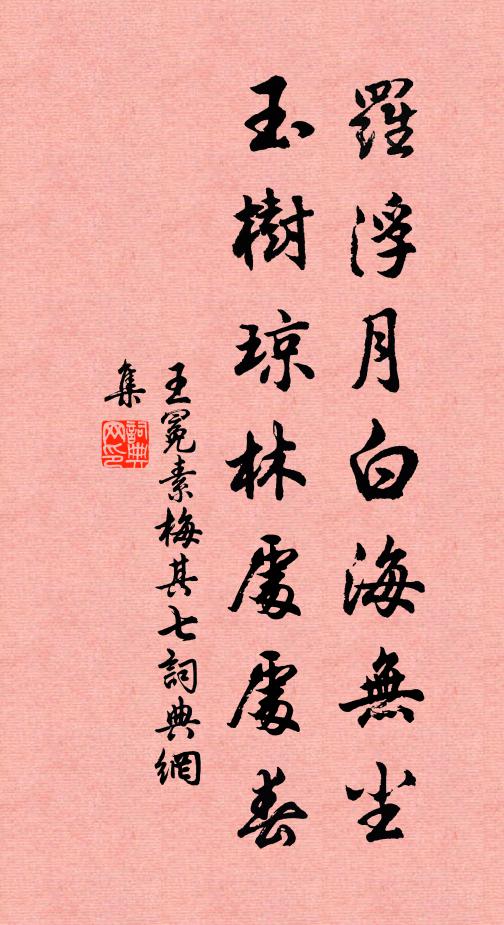 羅浮月白海無塵
玉樹琼林處處春
王冕素梅其七詞典網
集
詞典网印